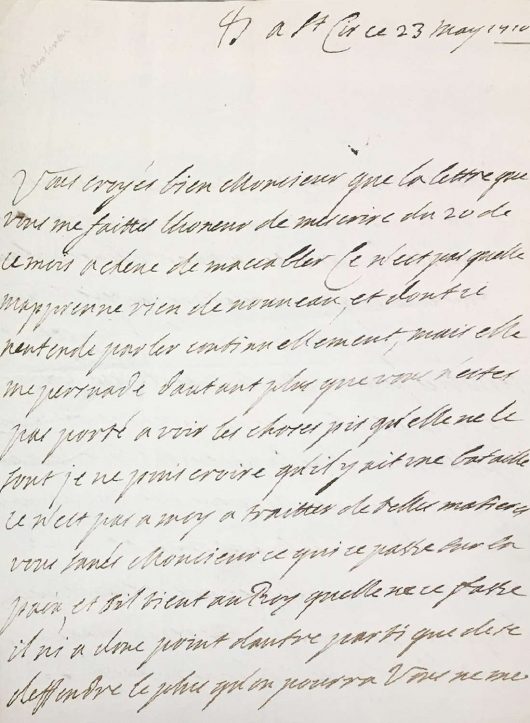 a St Cir ce 23 may 1710
Vous croyés bien Monsieur que la lettre que
vous me faittes lhoneur de mescrire du 20 de
ce mois acheve de maccabler Ce n'est pas quelle
mapprenne rien de nouveau et dont je
nentende parler continuellement, mais elle
me persuade dautant plus que vous nestes
pas porté a voir les choses pis qu'elle ne le
sont je ne puis croire qu'il y ait une bataille
ce n'est pas a moy a traitter de telles matieres
vous savés Monsieur ce qui ce passe sur la
paix, et sil tient au Roy quelle ne ce fasse
il ni a donc point dautre parti que de se
deffendre le plus qu'on pourra Vous ne me